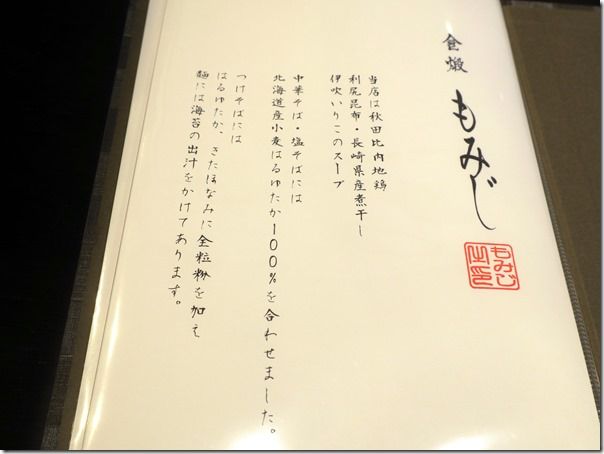 食煅 もみじ
もみじ之印
当店は秋田比内地鶏
利尻昆布・長崎県産煮干し
伊吹いりこのスープ
中華そば・塩そばには
北海道産小麦はるゆたか100%を合わせました。
つけそばには
はるゆたか、きたほなみに全粒粉を加え
麺には海苔の出汁をかけてあります。